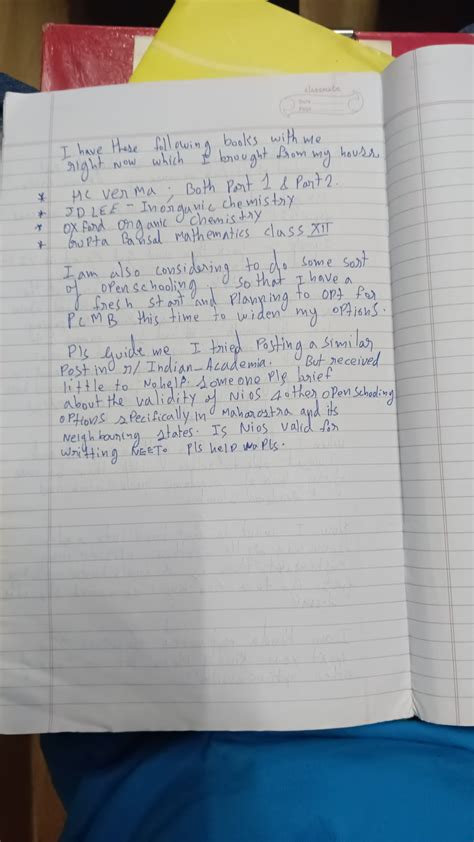 classmate
Date
Page
I have these following books with me
right now which I brought from my house
* HC verma; Both Part 1 & Part 2.
* JD LEE - Inorganic chemistry
* Oxford organic Chemistry
* Gupta Bansal Mathematics class XII
I am also considering to do some sort
of openschooling, so that I have a
fresh start and planning to opt for
PCMB this time to widen my options.
Pls Guide me I tried Posting a similar
Post in r/Indian-Academia. But received
little to No help. Someone Pls brief
about the validity of NIOS & other open schooling
options specifically in Maharastra and its
Neighbouring states. Is NIOS valid for
writting NEET. Pls help Pls.